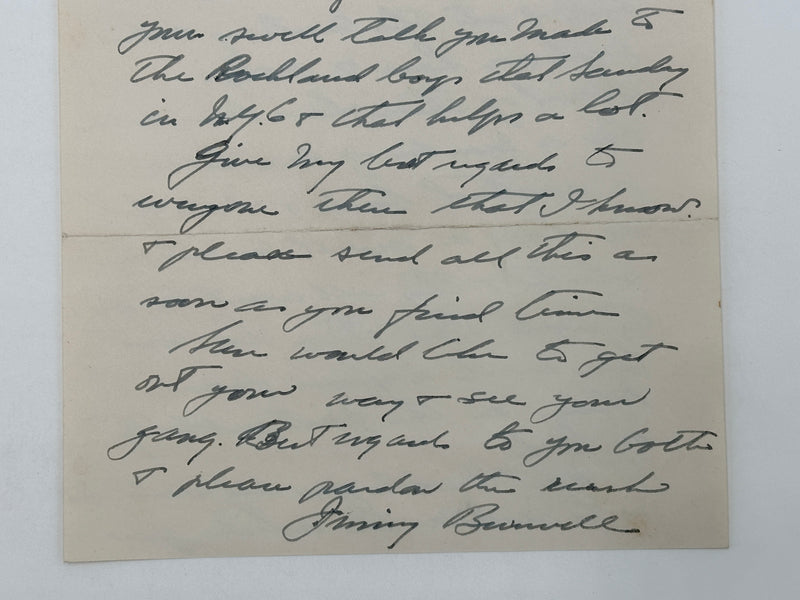 your swell talk you made to
the Rockland boys that Sunday
in N.Y.C. & that helps a lot.
Give my best regards to
everyone there that I know.
& please send all this as
soon as you find time
Sure would like to get
out your way & see your
gang. Best regards to you both
& please pardon the rush
Jimmy Burwell